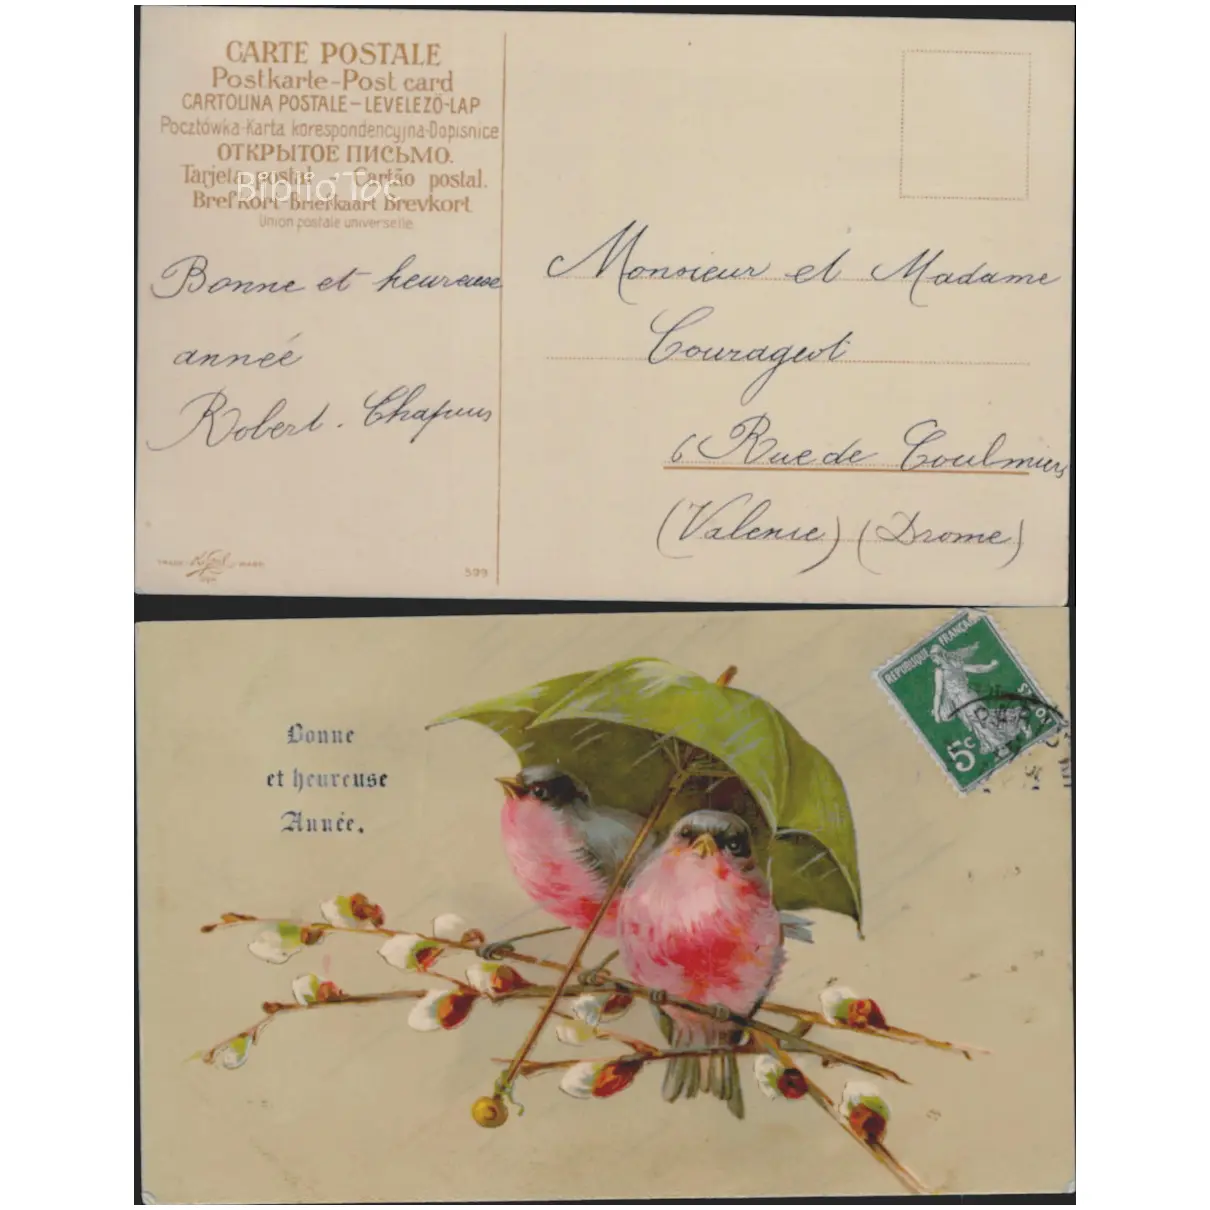 CARTE POSTALE
Postkarte-Post card
CARTOLINA POSTALE-LEVELEZŐ-LAP
Pocztówka-Karta korespondencyjna-Dopisnice
ОТКРЫТОЕ ПИСЬМО.
Tarjeta postal - Cartão postal.
Brefkort-Briefkaart Brevkort
Union postale universelle
Biblio'Toc
Bonne et heureuse
année
Robert. Chapuis
599
Monsieur et Madame
Courageot
6 Rue de Coulmiers
(Valence) (Drome)
Bonne
et heureuse
Année.
REPUBLIQUE FRANÇAISE
5c